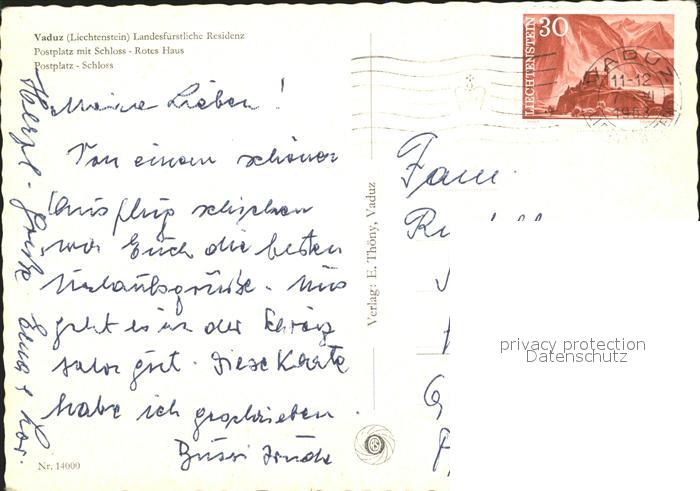 Vaduz (Liechtenstein) Landesfürstliche Residenz
Postplatz mit Schloss - Rotes Haus
Postplatz - Schloss
Meine Lieben!
Von einem schönen
Ausflug schicken
wir Euch die besten
Urlaubsgrüße. Uns
geht es in der Schweiz
sehr gut. Diese Karte
habe ich geschrieben.
Bussi Trude
Herzl. Grüße
Nr. 14000
Verlag: E. Thöny, Vaduz
LIECHTENSTEIN
30
VADUZ
11-12
Fam.
privacy protection
Datenschutz